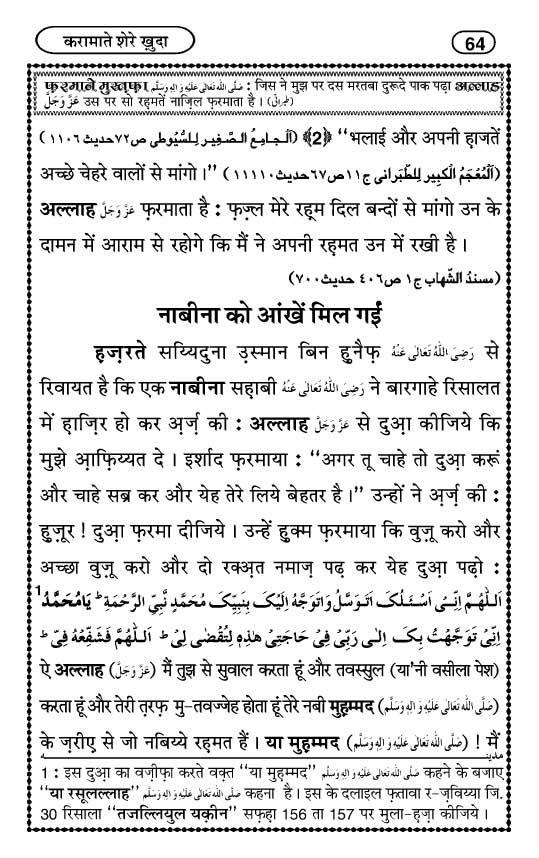 करामाते शेरे ख़ुदा
64
फ़रमाने मुस्त़फ़ा صَلَّى اللهُ تَعَالٰى عَلَيْهِ وَاٰلِهٖ وَسَلَّم : जिस ने मुझ पर दस मरतबा दुरूदे पाक पढ़ा अल्लाह
عَزَّوَجَلَّ उस पर सो रह़मतें नाज़िल फ़रमाता है । (طبرانی)
(اَلْجامِعُ الصَّغِير لِلسُّيُوطى ص٧٢حديث ١١٠٦) ﴾2﴿ “भलाई और अपनी ह़ाजतें
अच्छे चेहरे वालों से मांगो ।” (اَلْمُعْجَمُ الْكبِير لِلطَّبَرانى ج١١ص٦٧حديث١١١١٠)
अल्लाह عَزَّوَجَلَّ फ़रमाता है : फ़ज़्ल मेरे रह़्म दिल बन्दों से मांगो उन के
दामन में आराम से रहोगे कि मैं ने अपनी रह़मत उन में रखी है ।
(مسندُ الشّهاب ج١ ص٤٠٦ حديث٧٠٠)
नाबीना को आंखें मिल गईं
ह़ज़रते सय्यिदुना उ़स्मान बिन हु़नैफ़ رَضِىَ اللهُ تَعَالٰى عَنْهُ से
रिवायत है कि एक नाबीना सह़ाबी رَضِىَ اللهُ تَعَالٰى عَنْهُ ने बारगाहे रिसालत
में ह़ाज़िर हो कर अ़र्ज़ की : अल्लाह عَزَّوَجَلَّ से दुआ़ कीजिये कि
मुझे आ़फ़िय्यत दे । इर्शाद फ़रमाया : “अगर तू चाहे तो दुआ़ करूं
और चाहे सब्र कर और येह तेरे लिये बेहतर है ।” उन्हों ने अ़र्ज़ की :
हु़ज़ूर ! दुआ़ फ़रमा दीजिये । उन्हें हु़क्म फ़रमाया कि वुज़ू करो और
अच्छा वुज़ू करो और दो रक्अ़त नमाज़ पढ़ कर येह दुआ़ पढ़ो :
اَللّٰهُمَّ اِنِّىْ اَسْئَلُكَ اَتَوَسَّلُ وَاَتَوَجَّهُ اِلَيْكَ بِنَبِيِّكَ مُحَمَّدٍ نَّبِىِّ الرَّحْمَةِ ؕ يَامُحَمَّدُ 1
اِنِّىْ تَوَجَّهْتُ بِكَ اِلٰى رَبِّىْ فِىْ حَاجَتِىْ هٰذِهٖ لِتُقْضٰى لِىْ ؕ اَللّٰهُمَّ فَشَفِّعْهُ فِىَّ ؕ
ऐ अल्लाह (عَزَّوَجَلَّ) मैं तुझ से सुवाल करता हूं और तवस्सुल (या'नी वसीला पेश)
करता हूं और तेरी त़रफ़ मु-तवज्जेह होता हूं तेरे नबी मुह़म्मद (صَلَّى اللهُ تَعَالٰى عَلَيْهِ وَاٰلِهٖ وَسَلَّم)
के ज़रीए़ से जो नबिय्ये रह़मत हैं । या मुह़म्मद (صَلَّى اللهُ تَعَالٰى عَلَيْهِ وَاٰلِهٖ وَسَلَّم) ! मैं
مدينه
1 : इस दुआ़ का वज़ीफ़ा करते वक़्त “या मुह़म्मद” صَلَّى اللهُ تَعَالٰى عَلَيْهِ وَاٰلِهٖ وَسَلَّم कहने के बजाए
“या रसूलल्लाह” صَلَّى اللهُ تَعَالٰى عَلَيْهِ وَاٰلِهٖ وَسَلَّم कहना है । इस के दलाइल फ़तावा र-ज़विय्या जि.
30 रिसाला “तजल्लियुल यक़ीन” सफ़ह़ा 156 ता 157 पर मुला-ह़ज़ा कीजिये ।